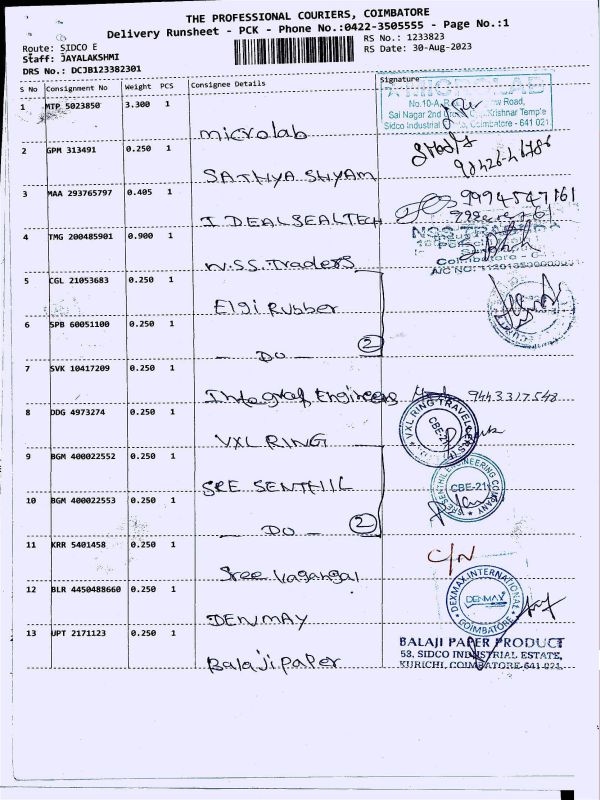 THE PROFESSIONAL COURIERS, COIMBATORE
Delivery Runsheet - PCK - Phone No.:0422-3505555 - Page No.:1
Route: SIDCO E
RS No.: 1233823
Staff: JAYALAKSHMI
RS Date: 30-Aug-2023
DRS No.: DCJB123382301
S No Consignment No Weight PCS Consignee Details Signature
1 MTP 5023850 3.300 1
microlab
MICROLAB
Row Road,
Sai Nagar 2nd Krishnar Temple
Sidco Industrial Coimbatore - 641 021
2 GPM 313491 0.250 1
SATHYA SHYAM
3 MAA 293765797 0.405 1
I DEAL SEAL TECH
9994547161
4 TMG 200485901 0.900 1
N.S.S. Traders
NSS TRADERS
5 CGL 21053683 0.250 1
Elgi Rubber
6 SPB 60051100 0.250 1
- DO - 2
7 SVK 10417209 0.250 1
Integraf Engineers 9443317548
8 DDG 4973274 0.250 1
VXL RING
VXL RING TRAVELLERS
CBE-21
9 BGM 400022552 0.250 1
SRE SENTHIL
SRE SENTHIL ENGINEERING COMPANY
CBE-21
10 BGM 400022553 0.250 1
- DO - 2
11 KRR 5401458 0.250 1
Sree Vagangai
C/N
12 BLR 4450488660 0.250 1
DENMAY
DEXMAX INTERNATIONAL
DENMAX
COIMBATORE
13 UPT 2171123 0.250 1
Balaji paper
BALAJI PAPER PRODUCT
53, SIDCO INDUSTRIAL ESTATE,
KURICHI, COIMBATORE-641 021.